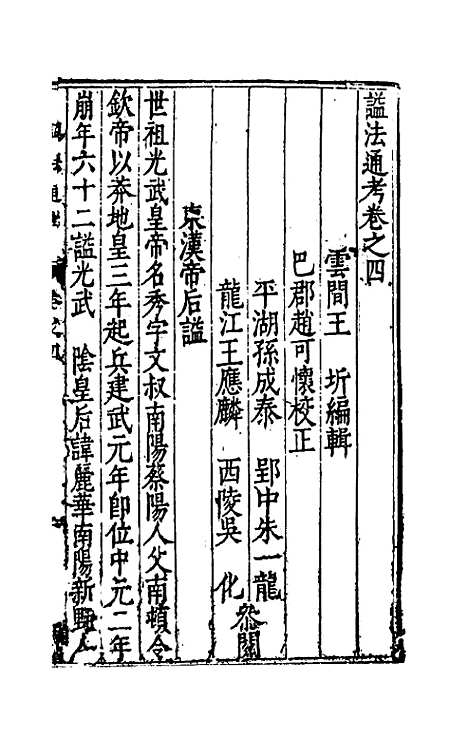 謚法通考卷之四
雲間王　圻編輯
巴郡趙可懷校正
平湖孫成泰　郢中朱一龍
龍江王應麟　西陵吳　化
叅閱
東漢帝后謚
世祖光武皇帝名秀字文叔南陽蔡陽人父南頓令
欽帝以莽地皇三年起兵建武元年卽位中元二年
崩年六十二謚光武　陰皇后諱麗華南陽新野人
卷之四